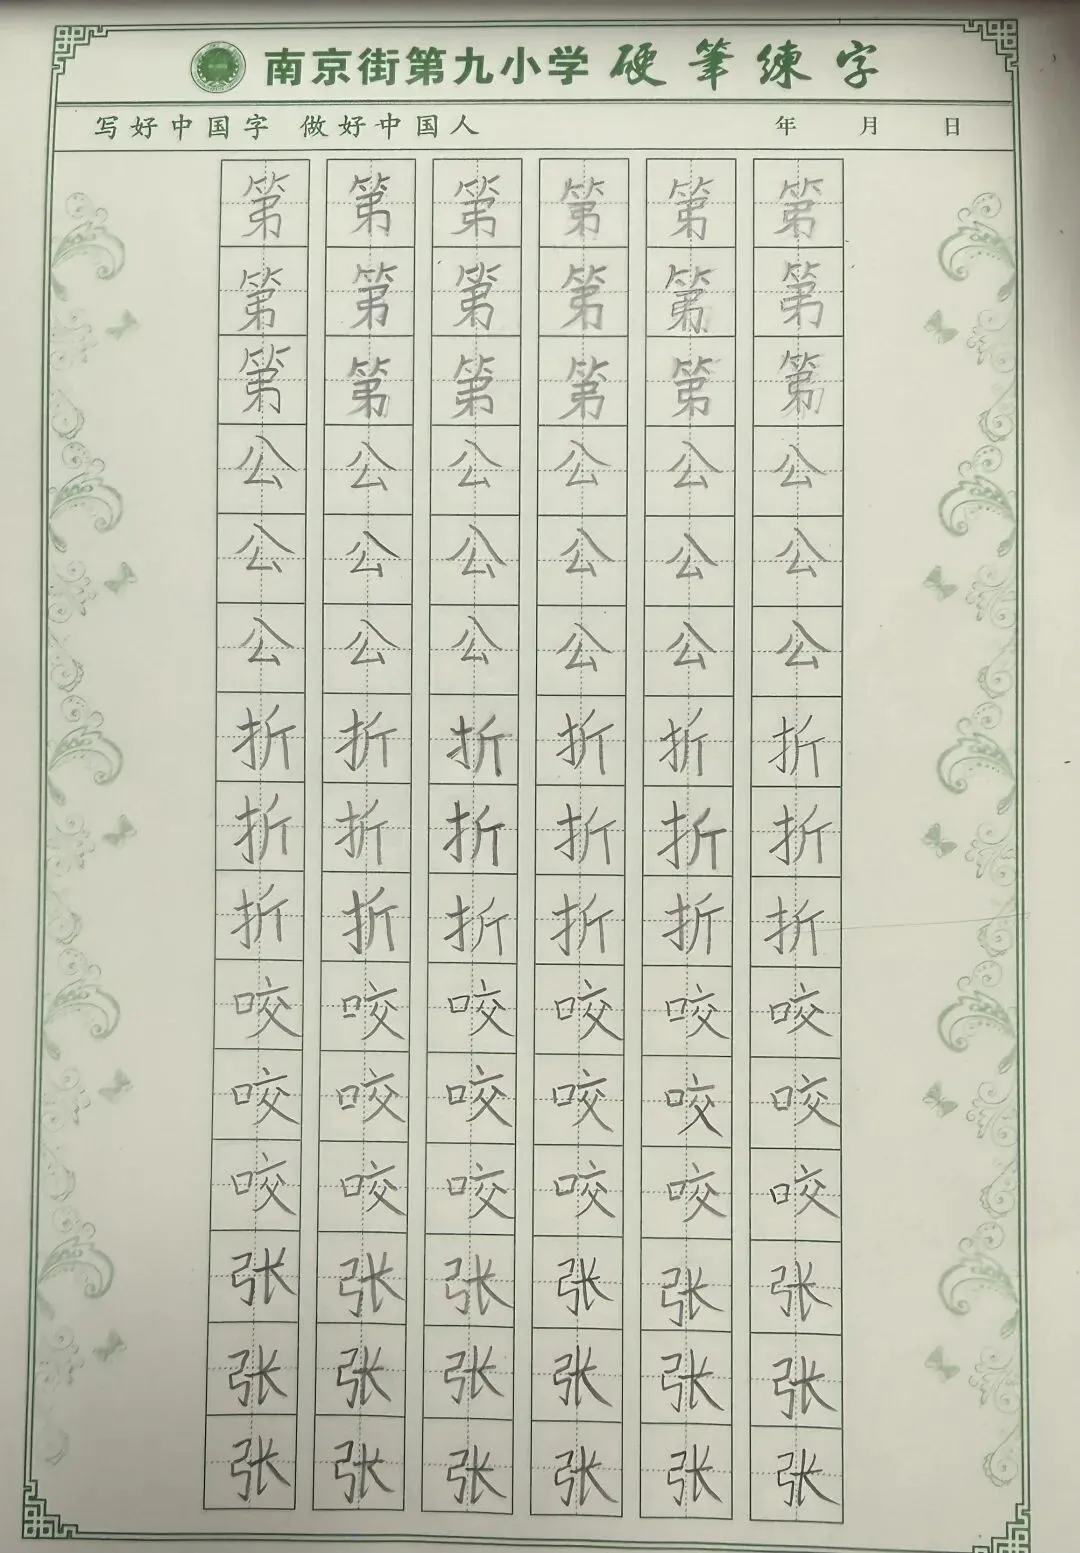 南京街第九小学 硬筆練字
写好中国字 做好中国人 年 月 日
第 第 第 第 第 第
第 第 第 第 第 第
第 第 第 第 第 第
公 公 公 公 公 公
公 公 公 公 公 公
公 公 公 公 公 公
折 折 折 折 折 折
折 折 折 折 折 折
折 折 折 折 折 折
咬 咬 咬 咬 咬 咬
咬 咬 咬 咬 咬 咬
咬 咬 咬 咬 咬 咬
张 张 张 张 张 张
张 张 张 张 张 张
张 张 张 张 张 张